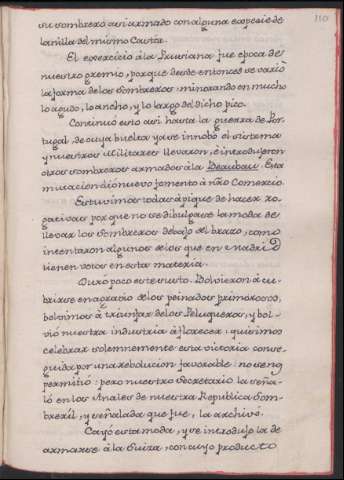 110
su sombrero asi armado con alguna especie de
lanilla del mismo Castór.
El exercicio á la Prusiana fue epoca de
nuestro gremio, porque desde entonces se varió
la forma de los Sombreros: minorando en mucho
lo agudo, lo ancho, y lo largo del dicho pico.
Continuó esto asi hasta la guerra de Por-
tugal, de cuya buelta ya se innobó el sistema
y nuestros Militares llevaron, é introdujeron
otros sombreros armados á la Beaubau. Esta
mutacion dió nuevo fomento á nrõ Comercio.
Estuvimos todas á pique de hacer ro-
gativas por que no se dibulgase la moda de
llevar los Sombreros debajo del brazo, como
intentaron algunos de los que en Madrid
tienen votos en esta materia.
Duró poco este susto. Volvieron á cu-
brirse en agravio de los peinados primorosos,
bolvimos á triunfar de los Peluqueros, y bol-
vió nuestra industria á florecer: quisimos
celebrar solemnemente esta victoria conse-
guida por una rebolucion favorable: no se nos
permitió: pero nuestro Secretario la seña-
ló en los Anales de nuestra Republica Som-
breril, y señalada que fue, la archivó.
Cayó esta moda, y se introdujo la de
armarse á la Suiza, con cuyo producto